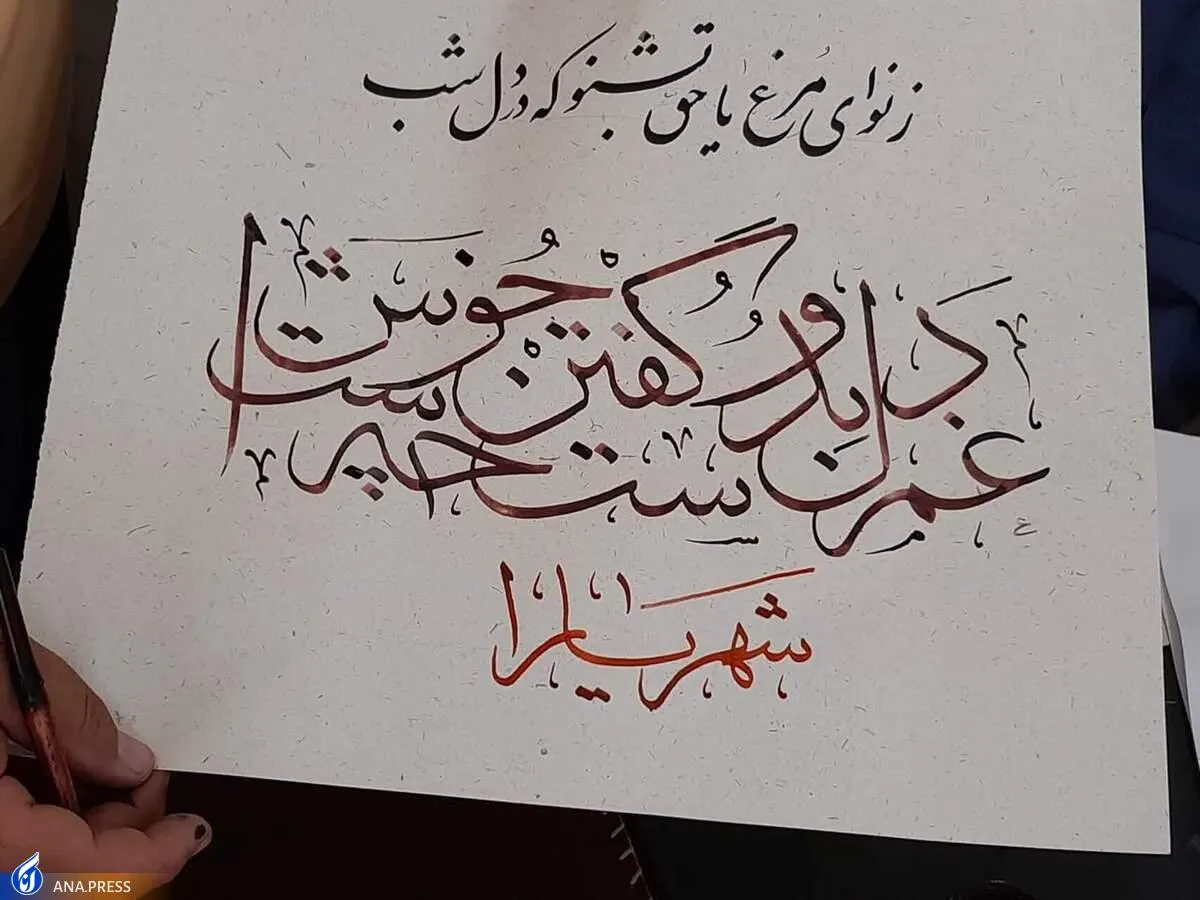 ز نوای مرغ یا حق بشنو که در دل شب
غم دل به دوست گفتن چه خوش است
شهریارا
ANA.PRESS